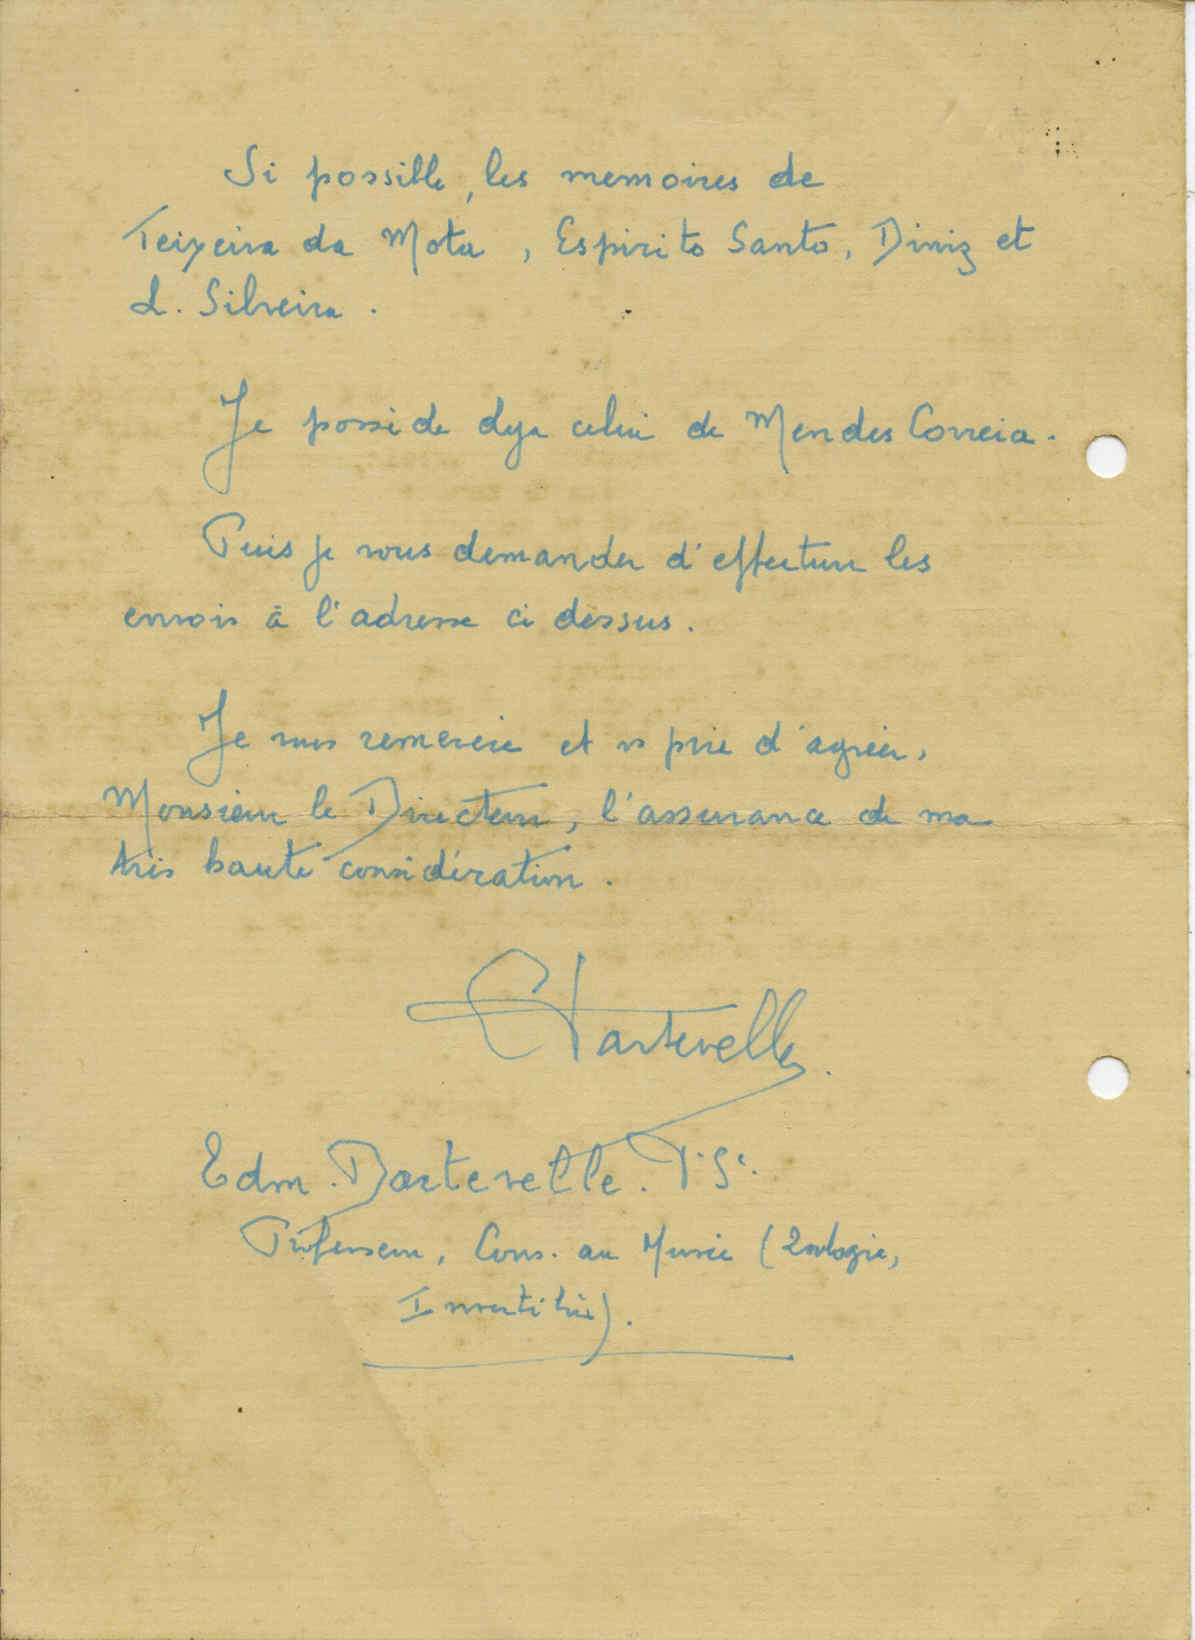 Si possible, les memoires de
Teixeira da Mota, Espirito Santo, Diniz et
L. Silveira.
Je possède deja celui de Mendes Correia.
Puis je vous demander d'effectuer les
envois à l'adresse ci dessus.
Je vous remercie et vs prie d'agréer,
Monsieur le Directeur, l'assurance de ma
très haute considération.
EDartevelle.
Edm. Dartevelle. D.Sc.
Professeur, Cons. au Musée (Zoologie,
Invertébrés).